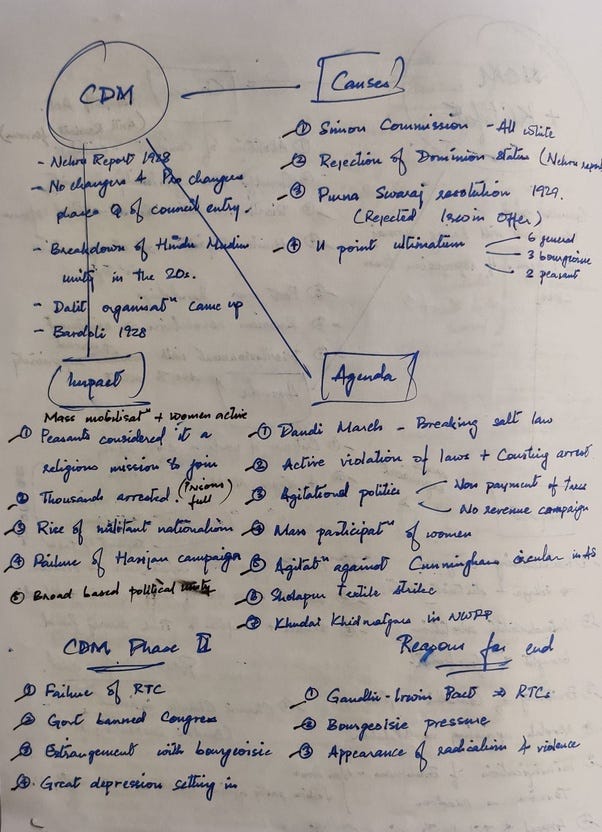 CDM
Causes
① Simon Commission - All white
② Rejection of Dominion status (Nehru report
③ Purna Swaraj resolution 1929.
(Rejected Irwin Offer)
④ 11 point ultimatum
6 general
3 bourgeoisie
2 peasant
- Nehru Report 1928
- No changers & Pro changers
phases Q of council entry.
- Breakdown of Hindu Muslim
unity in the 20s.
- Dalit organisatⁿ came up
- Bardoli 1928
Impact
Mass mobilisatⁿ + women active
① Peasants considered it a
religious mission to join
② Thousands arrested. (Prisons full)
③ Rise of militant nationalism
④ Failure of Harijan campaign
⑤ Broad based political unity
Agenda
① Dandi March - Breaking salt law
② Active violation of laws + Courting arrest
③ Agitational politics
Non payment of taxes
No revenue campaign
④ Mass participatⁿ of women
⑤ Agitatⁿ against Cunningham circular in AS
⑥ Sholapur Textile strike
⑦ Khudai Khidmatgars in NWFP
CDM Phase II
① Failure of RTC
② Govt banned Congress
③ Estrangement with bourgeoisie
④ Great depression setting in
Reasons for end
① Gandhi-Irwin Pact ⇒ RTCs
② Bourgeoisie pressure
③ Appearance of radicalism & violence